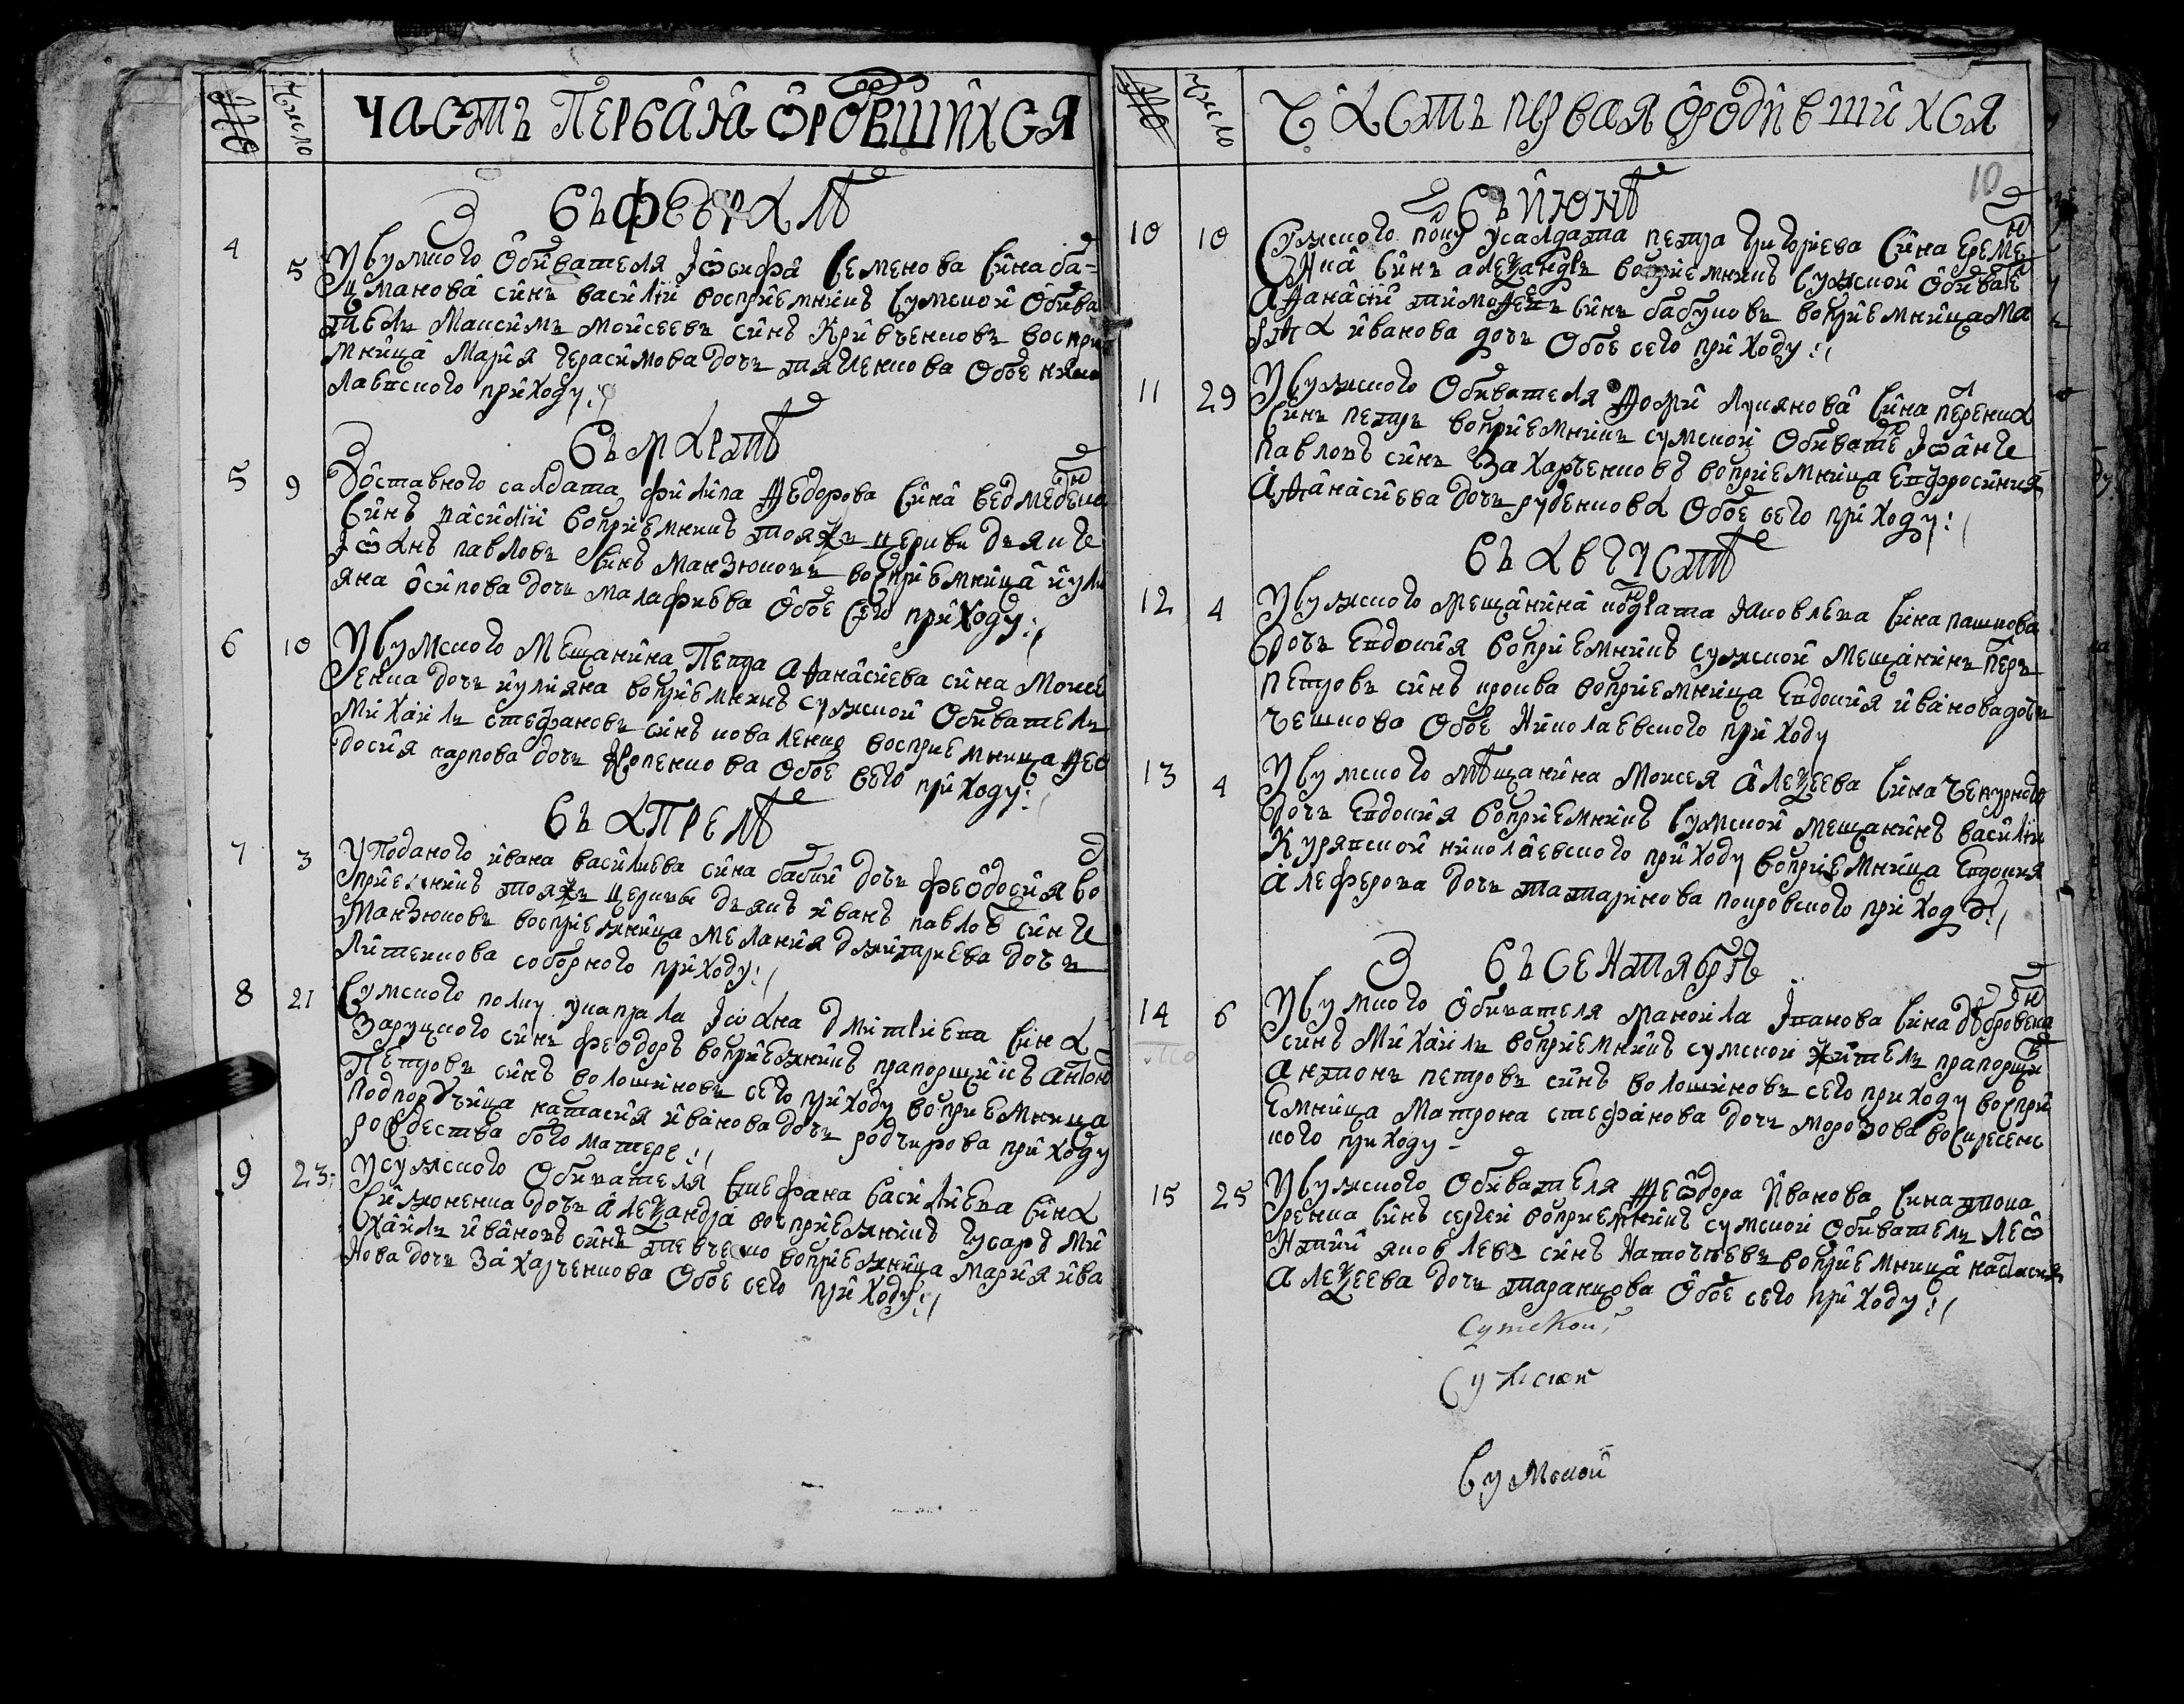 № Число ЧАСТЪ ПЕРВАЯ ѠРОДИВШИХСЯ
Въ февралѣ
4 5 У Сумского Обивателя Іѡсифа Семенова сина ба=
цманова синъ василїй восприемникъ Сумской Обива
тель Максимъ Мойсеевъ синъ Кривченковъ воспри
мница Марїя Герасимова дочь тягленкова Обое нико
лаевского приходу
Въ мартѣ
5 9 Ѿставного салдата филипа Ѳедорова сина ведмеденка
синъ василїй восприемникъ тояжъ церкви дьякъ
Іѡанъ павловъ синъ Манзюковъ восприемница иули
яна осипова дочь малафѣева Обое сего приходу
6 10 У Сумского Мещанина Павла Аѳанасиева сина Мойсе
енка дочь иулияна восприемникъ сумской Обиватель
михаилъ стефановъ синъ коваленко восприемница Ѳео
досия карпова дочь Кропенкова Обое сего приходу
Въ Апрелѣ
7 3 У Поданого ивана василиева сина бабий дочь феодосия во
сприемникъ тояжъ церкви дьякъ иванъ павловъ синъ
Манзюковъ восприемница мелания дмитриева дочь
Литенкова соборного приходу
8 21 Сумского полку у капрала Іѡана дмитриева сина
Заруцкого синъ феодоръ восприемникъ прапорщикъ антонъ
Петровъ синъ волошиновъ сего приходу восприемница
подпоручица настасия иванова дочь родчирова приходу
рождества богоматере
9 23 У сумского Обивателя Стефана василиева сина
Симоненка дочь Алеѯандра восприемникъ гусаръ ми
хаилъ ивановъ синъ шевченко восприемница мария ива
нова дочь Захарченкова Обое сего приходу
№ Число ЧАСТЬ первая ѡродившихся
10
Въ июнѣ
10 10 Сумского полку у салдата петра григориева сина ереме
енка синъ алеѯандръ восприемникъ сумской Обивате
Аѳанасий тимоѳеевъ синъ бабуновъ восприемница ма
рѳа иванова дочь Обое сего приходу
11 29 У Сумского Обивателя Ѳомы Лукянова сина
синъ петръ восприемникъ сумской Обивате Іѡанъ
павловъ синъ Захарченковъ восприемница Евфросиния
Аѳанасиева дочь руденкова Обое сего приходу
Въ Августѣ
12 4 У Сумского мещанина кондрата яковлева сина пашкова
дочь Евдокия восприемникъ сумской мещанинъ петръ
петровъ синъ восприемница Евдокия иванова дочь
чешкова Обое Николаевского приходу
13 4 У Сумского мѣщанина Моисея Алеѯеева сина Чепурного
дочь Евдокия восприемникъ Сумской мещанинъ василий
Курявской николаевского приходу восприемница Евдокия
Алеферова дочь татаринова покровского приходу
Въ СеНтябрѣ
14 6 У Сумского Обивателя манойла Іванова сина
синъ Михаилъ восприемникъ сумской житель прапорщик
Антонъ петровъ синъ волошиновъ сего приходу воспри
емница Матрона стефанова дочь морозова воскресенс
кого приходу
15 25 У Сумского Обивателя Ѳеѡдора Иванова сина тока
ренка синъ сергей восприемникъ сумской Обиватель Леѡ
нтий яковлевъ синъ восприемница настасия
Алеѯеева дочь таранцова Обое сего приходу
Сумской
Сумской
Сумской